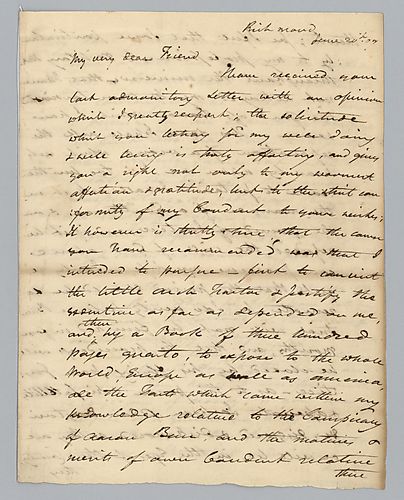 Richmond
June 20th 07
My very dear Friend
I have received your
last admonitory Letter with an opinion
which I greatly respect; the solicitude
which you betray for my well doing
& well being is truly affecting, and gives
you a right not only to my warmest
affection & gratitude, but to the strict con
formity of my Conduct to your wishes;
It however is strictly true that the course
you have recommended was that I
intended to pursue – first to convict
the little Arch Traitor & Justify the
executive as far as depended on me,
and, then by a Book of three hundred
pages quarto, to expose to the whole
World Europe as well as america
all the Facts which came within my
knowledge relative to the Conspiracy
of Aaron Burr; and the motives &
merits of own Conduct relative
thereto